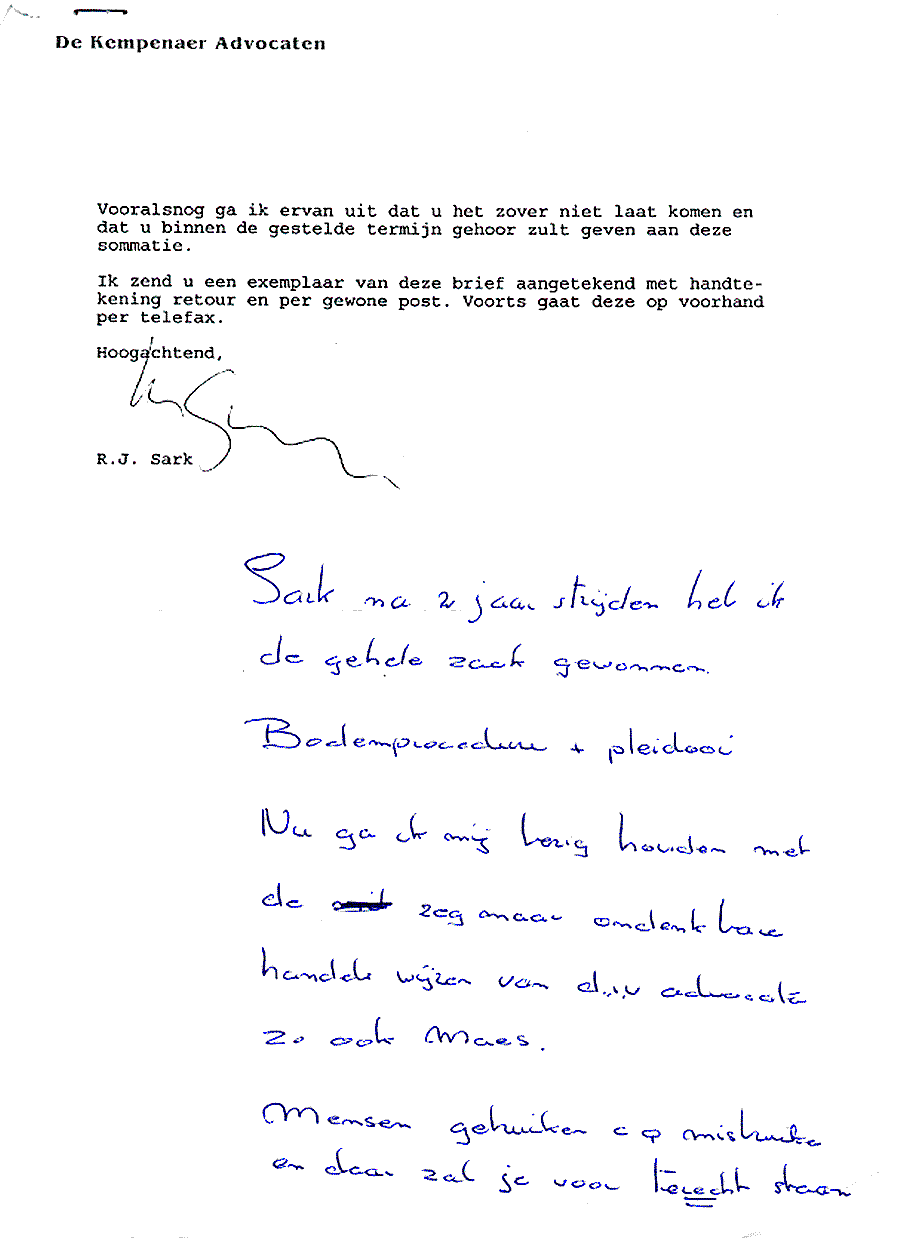 De Kempenaer Advocaten
Vooralsnog ga ik ervan uit dat u het zover niet laat komen en
dat u binnen de gestelde termijn gehoor zult geven aan deze
sommatie.
Ik zend u een exemplaar van deze brief aangetekend met handte-
kening retour en per gewone post. Voorts gaat deze op voorhand
per telefax.
Hoogachtend,
R.J. Sark
Sark na 2 jaar strijden heb ik
de gehele zaak gewonnen.
Bodemprocedure + pleidooi
Nu ga ik mij bezig houden met
de zeg maar ondenkbare
handele wijzen van d.i.v advocate
zo ook Maes.
Mensen gebruiken c q misbruike
en daar zal je voor terecht staan